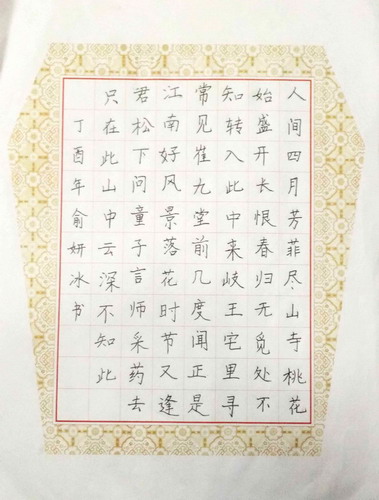 人间四月芳菲尽山寺桃花
始盛开长恨春归无觅处不
知转入此中来岐王宅里寻
常见崔九堂前几度闻正是
江南好风景落花时节又逢
君松下问童子言师采药去
只在此山中云深不知此
丁酉年俞妍冰书